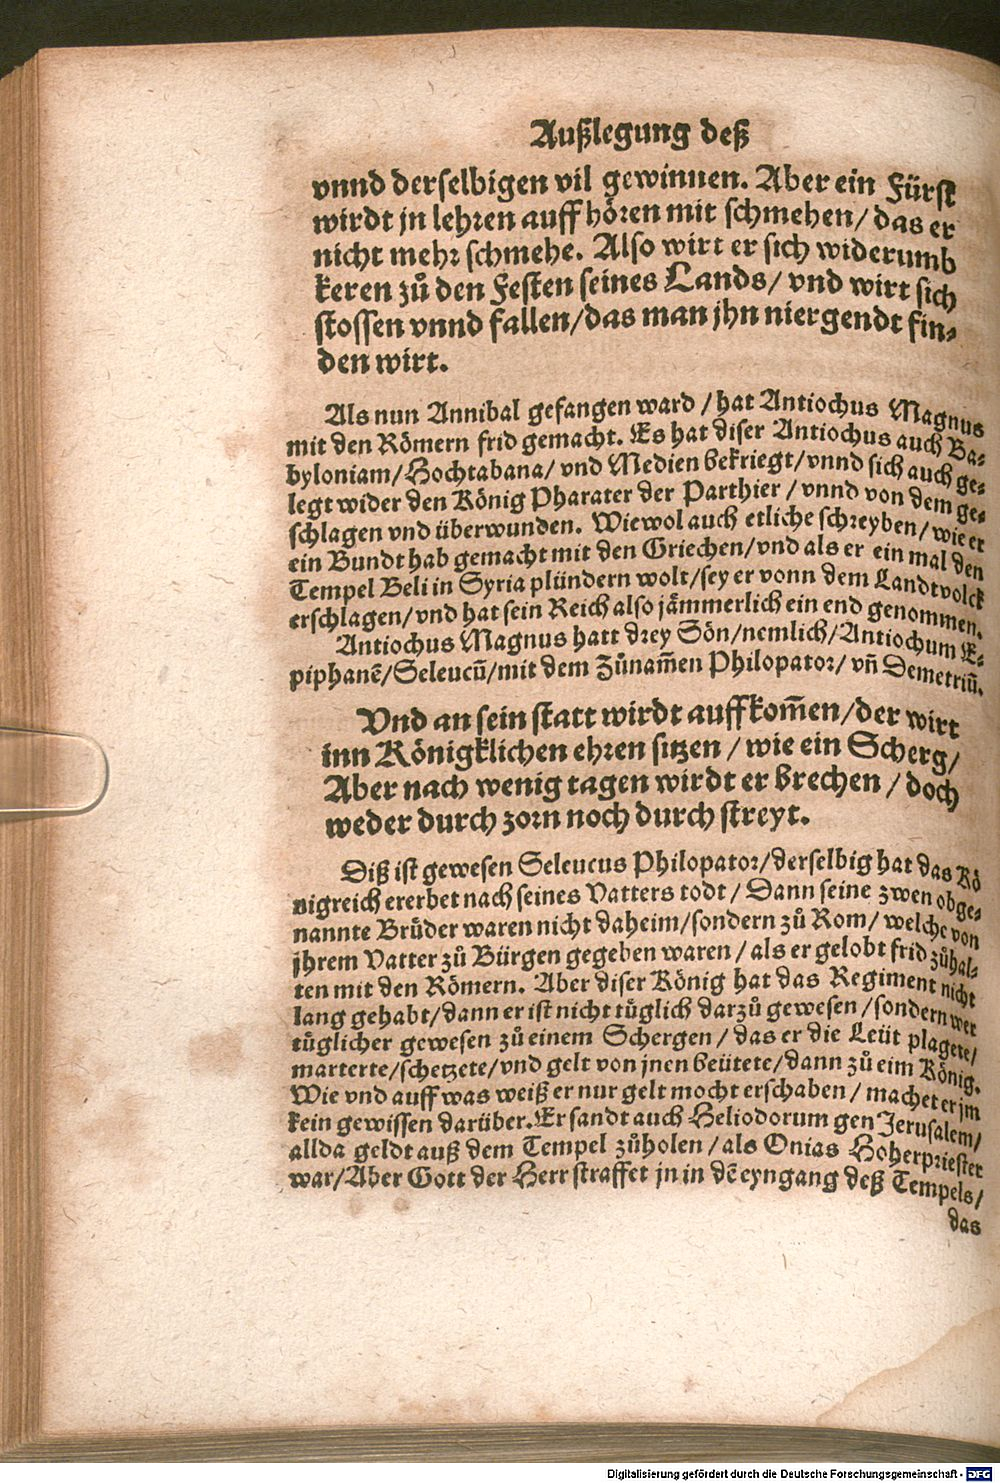 Außlegung deß
vnnd derselbigen vil gewinnen. Aber ein Fürst
wirdt jn lehren auff hören mit schmehen/ das er
nicht mehr schmehe. Also wirt er sich widerumb
keren zů den Festen seines Lands/ vnd wirt sich
stossen vnnd fallen/das man jhn niergendt fin-
den wirt.
Als nun Annibal gefangen ward /hat Antiochus Magnus
mit den Römern frid gemacht. Es hat diser Antiochus auch Ba-
byloniam/Hochtabana/ vnd Medien bekriegt/vnnd sich auch ge-
legt wider den König Pharater der Parthier /vnnd von dem ge-
schlagen vnd überwunden. Wiewol auch etliche schreyben/ wie er
ein Bundt hab gemacht mit den Griechen/vnd als er ein mal den
Tempel Beli in Syria plündern wolt/sey er vonn dem Landtvolck
erschlagen/vnd hat sein Reich also jämmerlich ein end genommen.
Antiochus Magnus hatt drey Sön/nemlich/Antiochum E-
piphanē/Seleucū/mit dem Zůnam̄en Philopator/ vn̄ Demetriū.
Vnd an sein statt wirdt auffkom̄en/der wirt
inn Königklichen ehren sitzen /wie ein Scherg/
Aber nach wenig tagen wirdt er brechen /doch
weder durch zorn noch durch streyt.
Diß ist gewesen Seleucus Philopator/derselbig hat das Kö
nigreich ererbet nach seines Vatters todt / Dann seine zwen obge-
nannte Brüder waren nicht daheim/sondern zů Rom/ welche von
jhrem Vatter zů Bürgen gegeben waren /als er gelobt frid zůhal-
ten mit den Römern. Aber diser König hat das Regiment nicht
lang gehabt/dann er ist nicht tüglich darzů gewesen /sondern wer
tüglicher gewesen zů einem Schergen /das er die Leüt plagete/
marterte/schetzete/vnd gelt von jnen beütete/dann zů eim König.
Wie vnd auff was weiß er nur gelt mocht erschaben/ machet er jm
kein gewissen darüber.Er sandt auch Heliodorum gen Jerusalem/
allda geldt auß dem Tempel zůholen /als Onias Hoherpriester
war/Aber Gott der Herr straffet jn in dē eyngang deß Tempels/
das
Digitalisierung gefördert durch die Deutsche Forschungsgemeinschaft - DFG